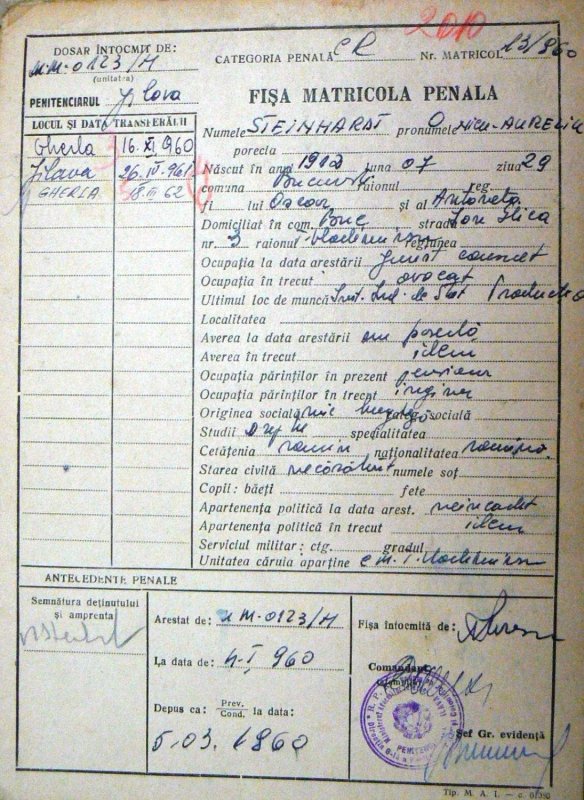 2010
DOSAR ÎNTOCMIT DE:
U.M.0123/H
(unitatea)
PENITENCIARUL Jilava
CATEGORIA PENALĂ CR
Nr. MATRICOL 13/960
FIȘA MATRICOLA PENALA
LOCUL ȘI DATA TRANSFERĂRII
Gherla 16.XI.960
Jilava 26.IV.961
GHERLA 8 III 62
Numele STEINHARDT pronumele Nicu-Aureliu
porecla
Născut în anul 1912 luna 07 ziua 29
comuna București raionul reg.
fi lui Oscar și al Antoneta
Domiciliat în com. Buc strada Ion Ghica
nr. 3 raionul regiunea
Ocupația la data arestării jurist consult
Ocupația în trecut avocat
Ultimul loc de muncă
Localitatea
Averea la data arestării nu posedă
Averea în trecut idem
Ocupația părinților în prezent pensionar
Ocupația părinților în trecut inginer
Originea socială mic categ. socială
Studii specialitatea
Cetățenia română naționalitatea română
Starea civilă necăsătorit numele soț
Copii: băeți fete
Apartenența politică la data arest. neîncadrat
Apartenența politică în trecut idem
Serviciul militar: ctg. gradul
Unitatea căruia aparține
ANTECEDENTE PENALE
Semnătura deținutului
și amprenta
Arestat de: U.M-0123/H
La data de: 4.I.960
Depus ca: Prev. Cond. la data:
5.03.1960
Fișa întocmită de:
Comandant
PENITENC
Șef Gr. evidență
Tip. M. A. I. — c.